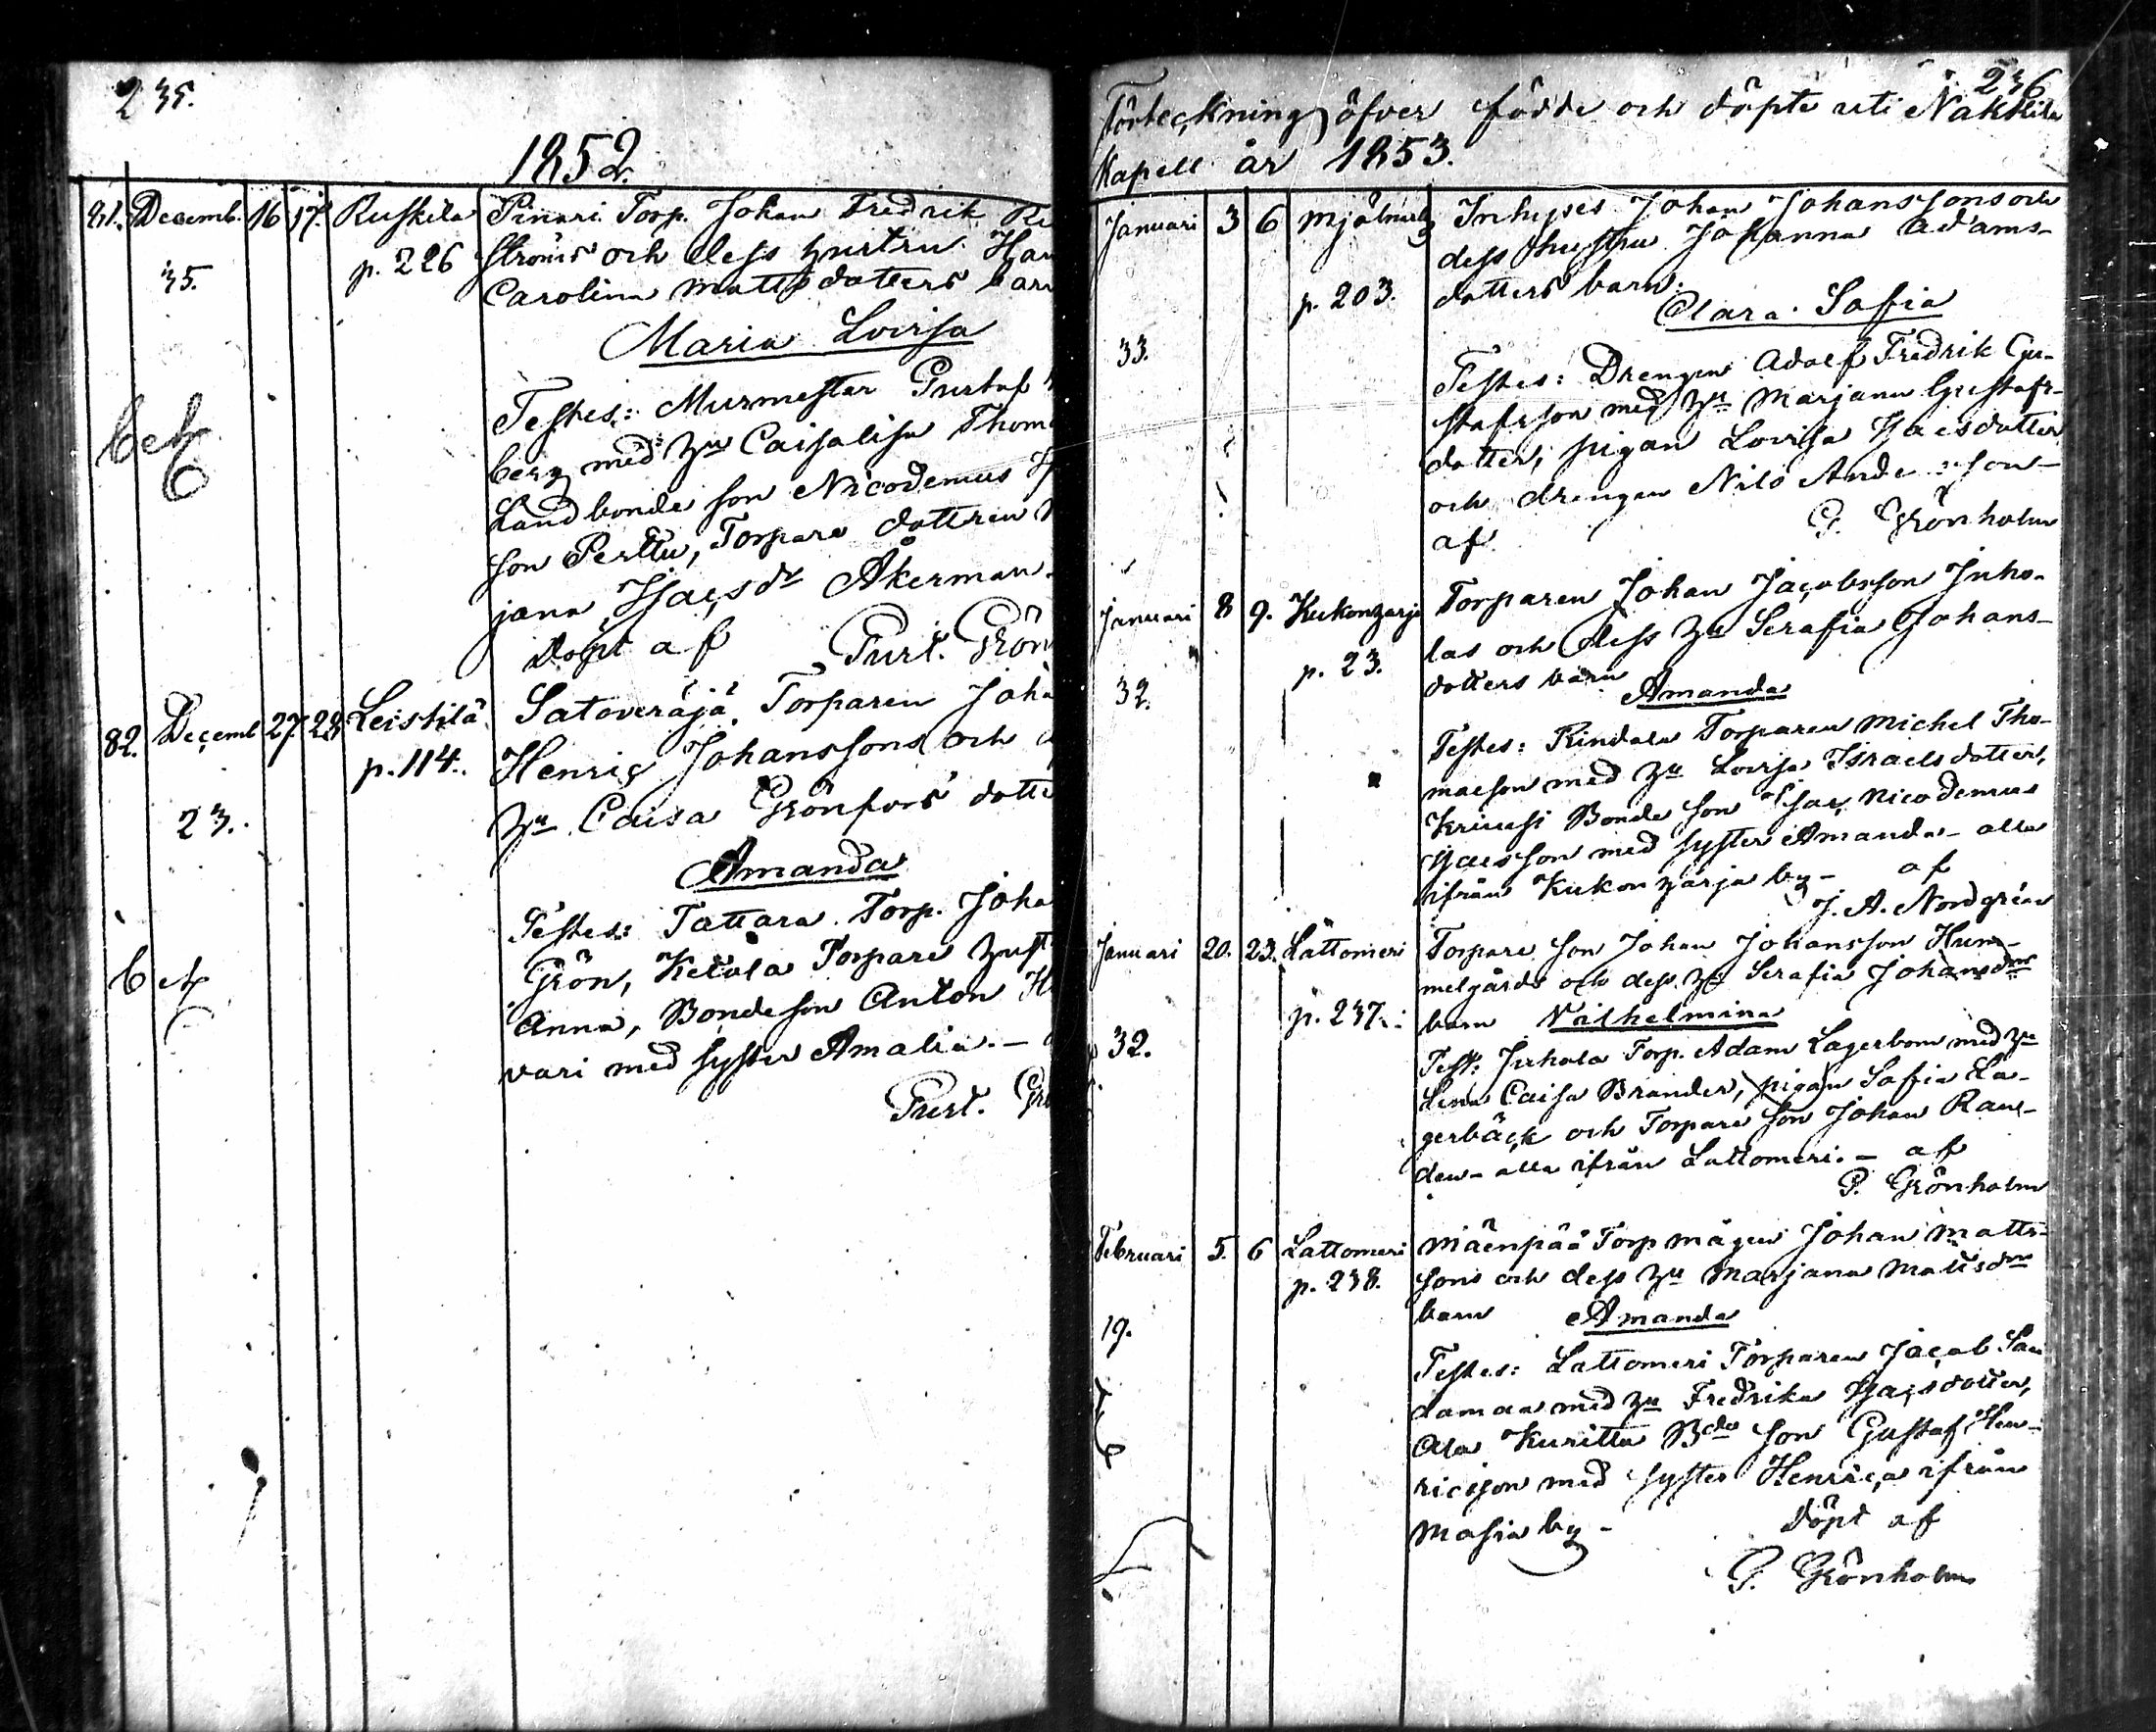 235.
1852.
81. Decemb. 16 17. Ruskila Pinari Torp. Johan Fredrik
35. p. 226 ströms och dess hustru
Carolina Mattsdotters barn
Maria Lovisa
Testes: Murmestar Gustaf
berg med hu Caisalisa Thom
Landbonde son Nicodemus
son Perttu, Torpare dottren
jana Isacsdr Åkerman
Döpt af Gust. Grön
82. Decemb 27 28 Leistilä Satoveräjä Torparen Joha
p. 114. Henric Johanssons och
23. hu Caisa Grönfors dotte
Amanda
Testes: Tattara Torp. Joha
Grön, Ketola Torpare hust
Anna, Bondeson Anton
vari med syster Amalia. –
Gust. Grö
236
Förteckning öfver födde och döpte uti Nakkila
Kapell år 1853.
Januari 3 6 Inhyses Johan Johanssons och
dess hustru Johanna Adams-
p. 203. dotters barn.
Clara Sofia
33.
Testes: Drengen Adolf Fredrik Gu-
stafsson med hu Marjana Gustafs-
dotter, pigan Lovisa Isacsdotter
och drengen Nils Andersson –
af G. Grönholm
Januari 8 9. Kukonharja Torparen Johan Jacobsson Inho-
las och dess hu Serafia Johans-
p. 23. dotters barn
32. Amanda
Testes: Rindala Torparen Michel Tho-
masson med hu Lovisa Israelsdotter,
Bonde son Isac Nicodemus
Isacsson med syster Amanda – alla
ifrån Kukonharja by – af
J. A. Nordgrén
Januari 20. 23. Lattomeri Torpare son Johan Johansson Hum-
melgårds och dess hu Serafia Johansdrs
p. 237. barn Vilhelmina
32. Test: Juhola Torp. Adam Lagerbom med hu
Lena Caisa Brander, pigan Sofia La-
gerbäck och Torpare son Johan Ran-
den – alla ifrån Lattomeri. – af
G. Grönholm
Februari 5. 6 Lattomeri Mäenpää Torp mågen Johan Matts-
p. 238. sons och dess hu Marjana Mattsdrs
barn Amanda
19.
Testes: Lattomeri Torparen Jacob
daman med hu Fredrika Isacsdotter,
Kuritta Bde son Gustaf Hen-
ricsson med syster Henrica ifrån
Masia by – Döpt af
G. Grönholm